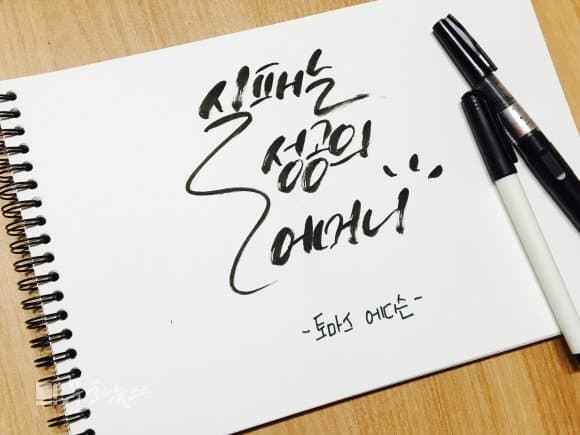 실패는
성공의
어머니
-토마스 에디슨-